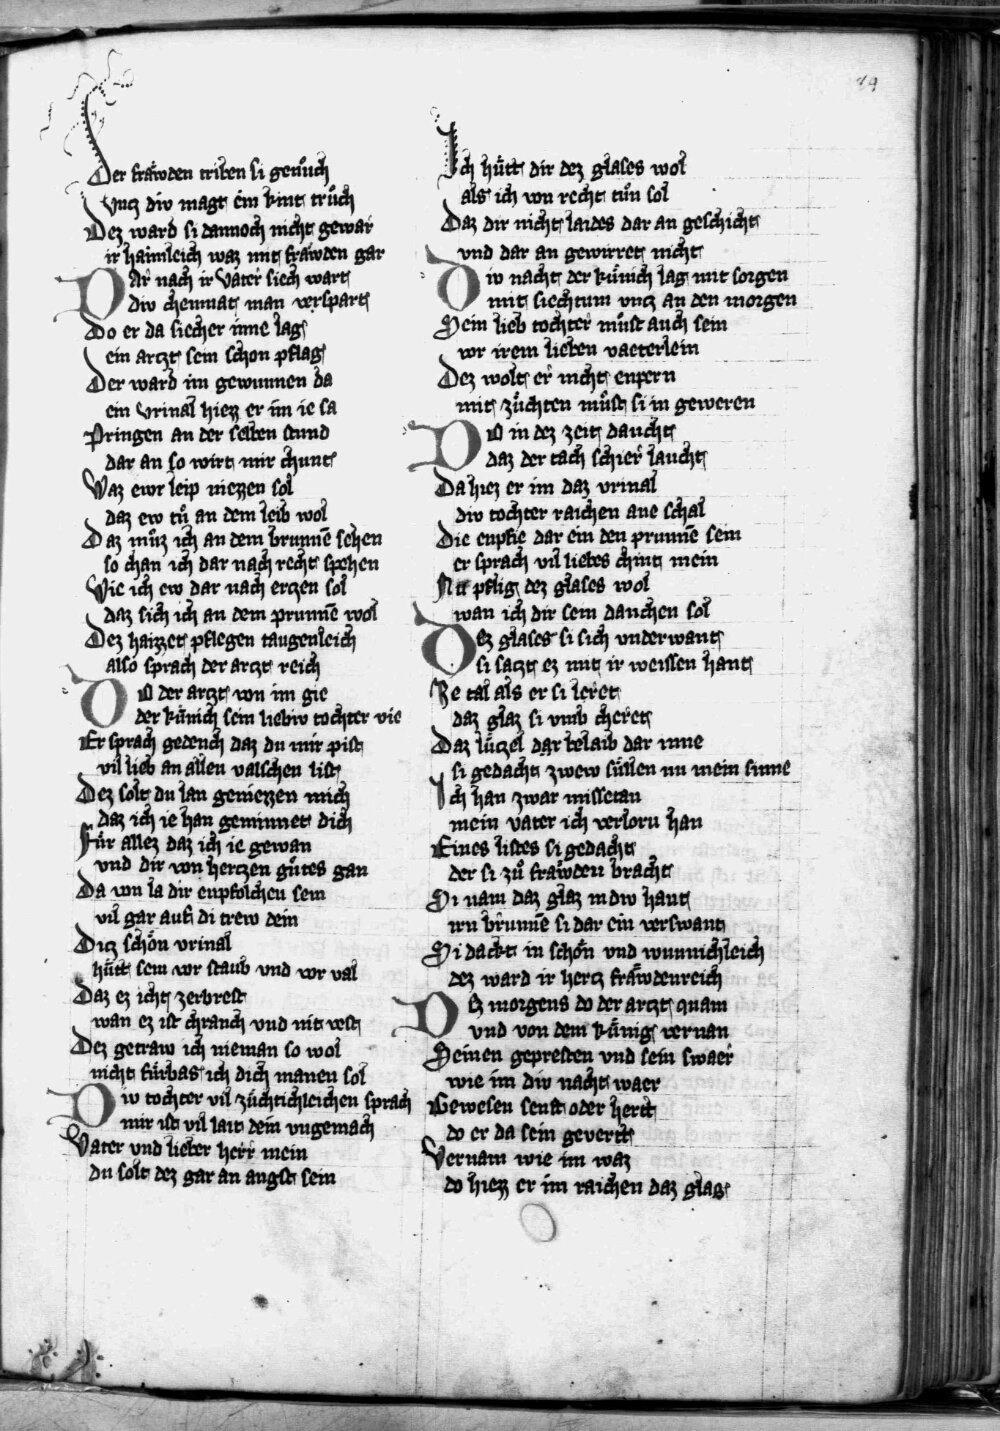 89
Der fraͤwden triben si genuͦch
Vntz div magt ein kint truͦch
Dez ward si dannoch nicht gewar
ir haimleich waz mit fraͤwden gar
DAr nach ir vater siech wart
div chemnat man verspart
Do er da siecher inne lag
ein artzt sein schon pflag
Der ward im gewunnen da
ein vrinal hiezz er im ie sa
Pringen an der selben stund
dar an so wirt mir chunt
Waz ewr leip niezzen sol
daz ew tuͦ an dem leib wol
Daz muͦz ich an dem brunnē sehen
so chan ich dar nach recht spehen
Wie ich ew dar nach ertzen sol
daz sich ich an dem prunnē wol
Dez haizzet pflegen taugenleich
also sprach der artzt reich
DO der artzt von im gie
der kuͤnich sein liebiv tochter vie
Er sprach gedench daz du mir pist
vil lieb an allen valschen list
Dez solt du lan geniezzen mich
daz ich ie han geminnet dich
Fuͤr allez daz ich ie gewan
vnd dir von hertzen guͦtes gan
Da von la dir enpfolchen sein
vil gar auf di trew dein
Ditz schoͤn vrinal
huͤtt sein vor staub vnd vor val
Daz ez icht zerbrest
wan ez ist chranch vnd nit vest
Dez getraw ich nieman so wol
nicht fuͤrbas ich dich manen sol
DIv tochter vil zuͤchtichleichen sprach
mir ist vil lait dein vngemach
Vater vnd lieber herr mein
du solt dez gar an angst sein
Ich huͤtt dir dez glases wol
als ich von recht tuͦn sol
Daz dir nicht laides dar an geschicht
vnd dar an gewirret nicht
DIv nacht der kuͤnich lag mit sorgen
mit siechtum vntz an den morgen
Sein lieb tochter muͦst auch sein
vor irem lieben vaeterlein
Dez wolt er nicht enpern
mit zuͤchten muͦst si in geweren
DO in dez zeit daucht
daz der tach schier laucht
Da hiez er im daz vrinal
div tochter raichen ane schal
Die enpfie dar ein den prunnē sein
er sprach vil liebes chint mein
Nu pflig dez glases wol
wan ich dir sein danchen sol
DEz glases si sich vnderwant
si satzt ez mit ir weissen hant
Ze tal als er si leret
daz glaz si vmb cheret
Daz luͤtzel dar belaib dar inne
si gedacht zwew suͤllen nu mein sinne
Ich han zwar missetan
mein vater ich verlorn han
Eines listes si gedacht
der si zuͦ fraͤwden bracht
Si nam daz glaz in div hant
irn brunnē si dar ein verswant
Si dackt in schoͤn vnd wunnichleich
dez ward ir hertz fraͤwdenreich
DEz morgens do der artzt quam
vnd von dem kuͤnig vernan
Seinen gepresten vnd sein swaer
wie im div nacht waer
Gewesen senft oder hertt
do er da sein gevertt
Vernam wie im waz
do hiezz er im raichen daz glas